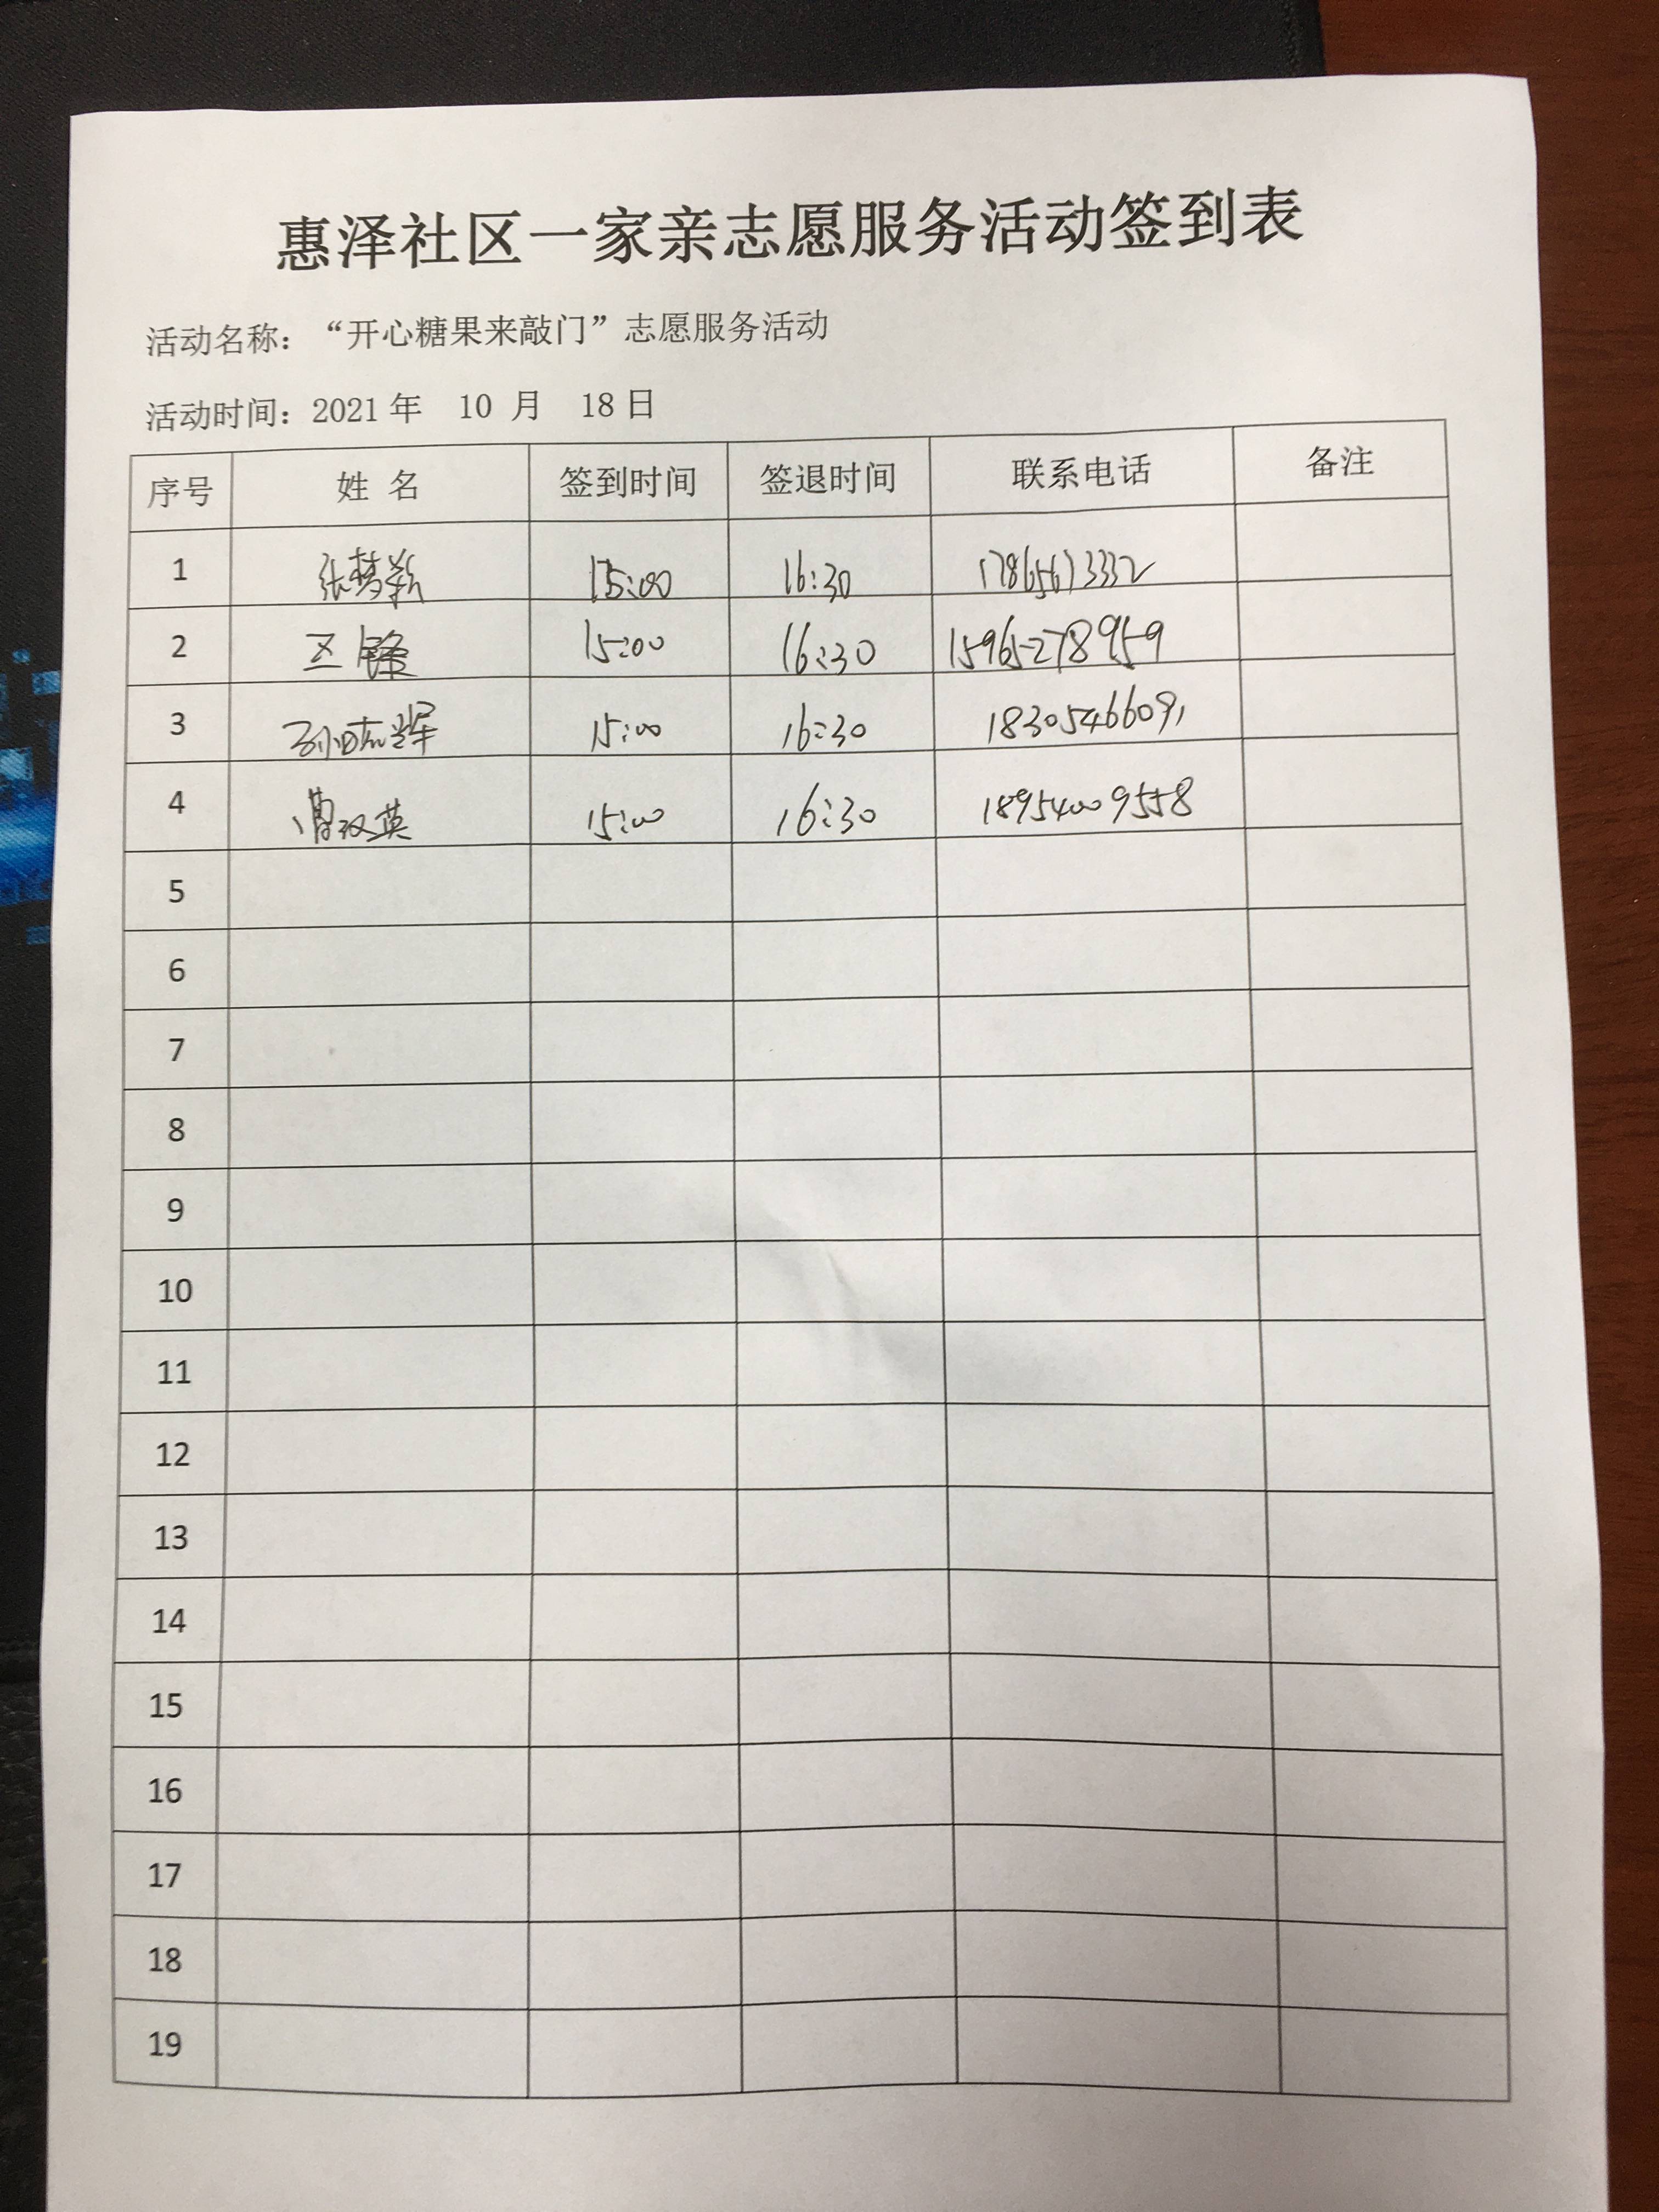 惠泽社区一家亲志愿服务活动签到表
活动名称：“开心糖果来敲门”志愿服务活动
活动时间：2021年 10 月 18日
序号 姓 名 签到时间 签退时间 联系电话 备注
1 张梦新 15:00 16:30 17865673332
2 15:00 16:30 15965278959
3 15:00 16:30 18305466091
4 曹汉英 15:00 16:30 18954009558
5
6
7
8
9
10
11
12
13
14
15
16
17
18
19